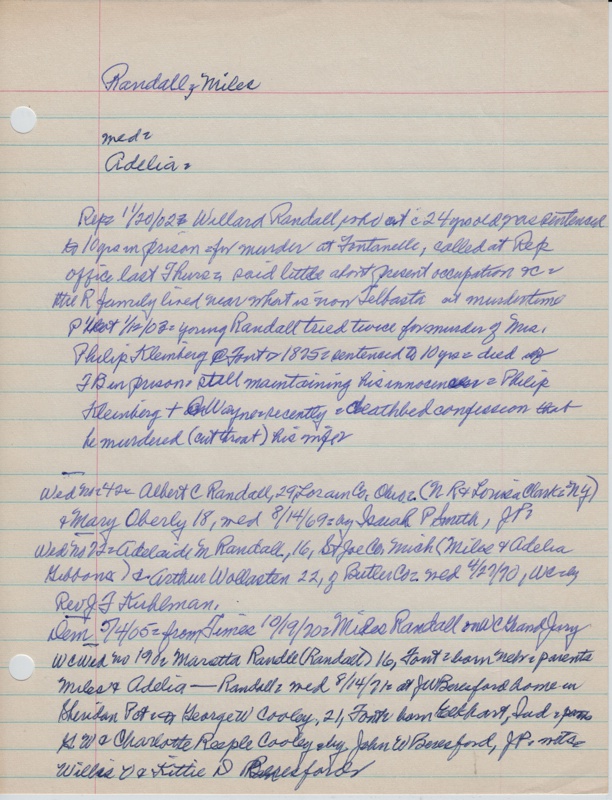 Randall, Miles
med=
Adelia=
Rep= 11/20/02= Willard Randall, who at c 24 yrs old was sentenced
to 10 yrs in prison for murder at Fontanelle, called at Rep
office last Thurs= said little abort present occupation &c=
the R family lived near what is now Telbasta at murder time
1/12/03= young Randall tried twice for murder of Mrs.
Philip Kleinberg @ Font= 1875= sentenced to 10 yrs= died of
TB in prison= still maintaining his innocence= Philip
Kleinberg + @ Wayne recently= deathbed confession that
he murdered (cut throat) his wife
Wed no 42= Albert C Randall, 29, Lorain Co, Ohio= (N R & Louisa Clark= NY)
& Mary Oberly 18, wed 8/14/69= by Isaiah P Smith, JP=
Wed no 72= Adelaide M Randall, 16, St Joe Co, Mich (Miles & Adelia
Gibbons) & Arthur Wollasten 22, of Butler Co= wed 4/27/70, WC= by
Rev J F Kuhlman.
Dem 5/4/05= from Times 10/19/70= Miles Randall on WC Grand Jury
WC Wed no 190= Maretta Randle (Randall) 16, Font= born Nebr= parents
Miles & Adelia — Randall= wed 8/14/71= at JW Beresford home in
Sheridan Pct= to George W Cooley, 21, Font= born Elkhart, Ind=
G W & Charlotte Reeple Cooley= by John W Beresford, JP= wits=
Willis & Kittie D Beresford